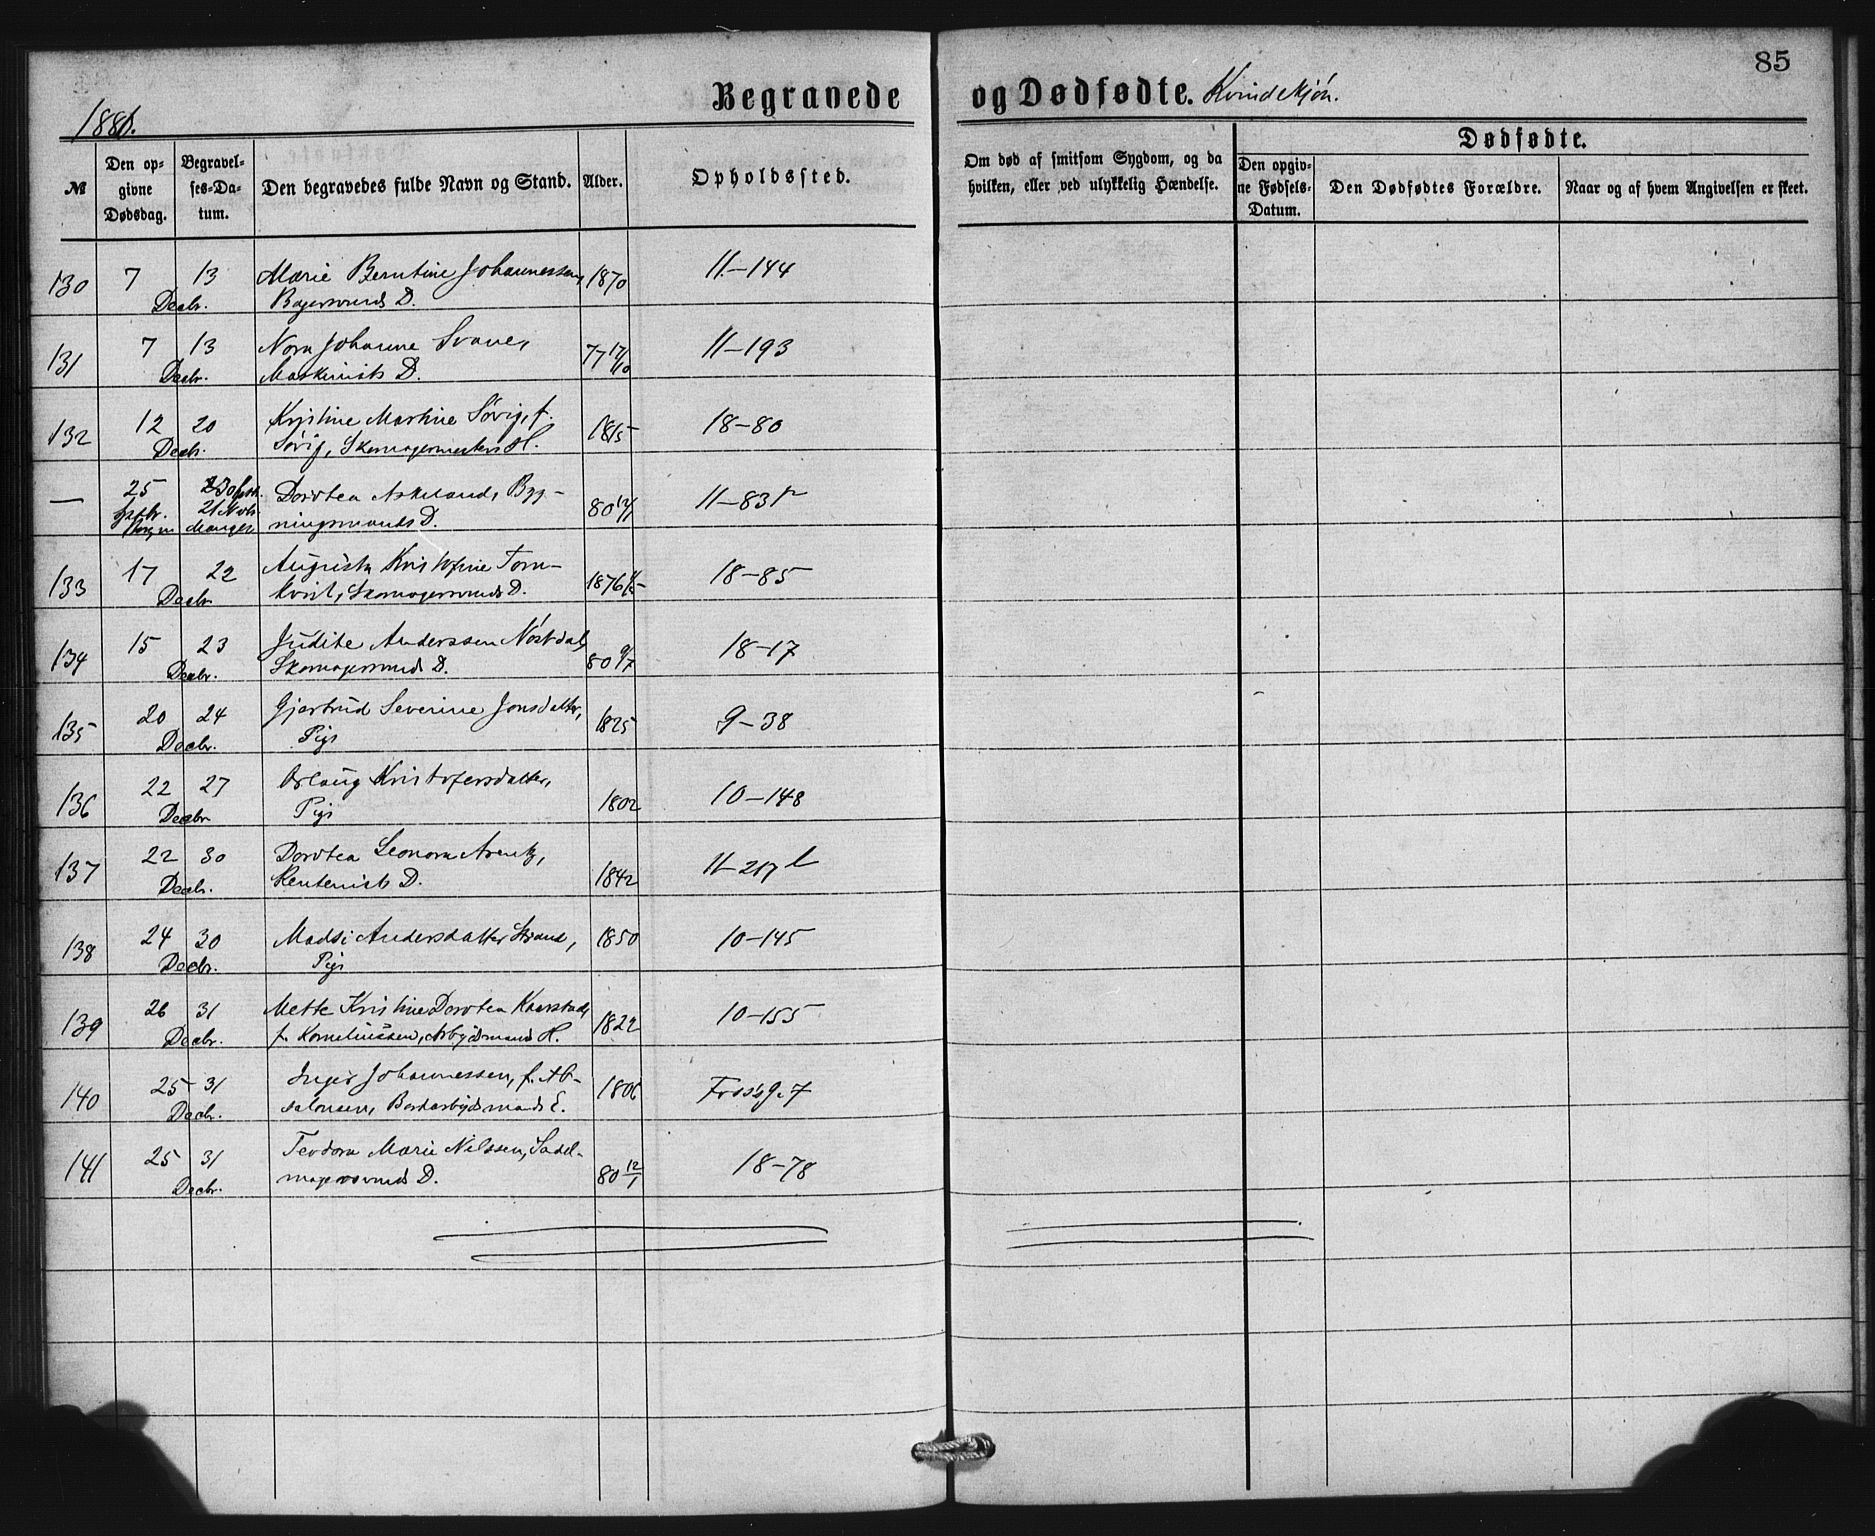 85
Begravede og Dødfødte. Kvindekjön.
1881.
№ Den op- Begravel- Den begravedes fulde Navn og Stand. Alder. Opholdssted. Om død af smitsom Sygdom, og da Dødfødte.
givne ses-Da- hvilken, eller ved ulykkelig Hændelse. Den opgiv- Den Dødfødtes Forældre. Naar og af hvem Angivelsen er skeet.
Dødsdag. tum. ne Fødsels-
Datum.
130 7 13 Marie Berntine Johannessen, 1870 11-144
Decbr. Bagersvends D.
131 7 13 Nora Johanne Svane, 77 17/10 11-193
Decbr. Maskinists D.
132 12 20 Kristine Martine Sövig, f. 1815 18-80
Decbr. Sövig, Skomagermesters H.
— 25 Dorotea Askeland, Byg- 80 11-83
ningsmands D.
133 17 22 Augusta Kristofine Torn- 1876 18-85
Decbr. kvist, Skomagersvends D.
134 15 23 Judite Anderssen Nöstdal, 80 9/7 18-17
Decbr. Skomagersvends D.
135 20 24 Gjertrud Severine Jonsdatter, 1825 9-38
Decbr. Pige
136 22 27 Aslaug Kristofersdatter, 1802 10-148
Decbr. Pige
137 22 30 Dorotea Leonora Arentz, 1842 11-217
Decbr. Rentenists D.
138 24 30 Madsi Andersdatter Strand, 1850 10-145
Decbr. Pige
139 26 31 Mette Kristine Dorotea Kaarstad, 1822 10-155
Decbr. f. Korneliussen, Arbeidsmands H.
140 25 31 Inger Johannessen, f. Ab- 1806 Fossg. 7
Decbr. salonsen, E.
141 25 31 Teodora Marie Nilssen, Sadel- 80 12/1 18-78
Decbr. magersvends D.